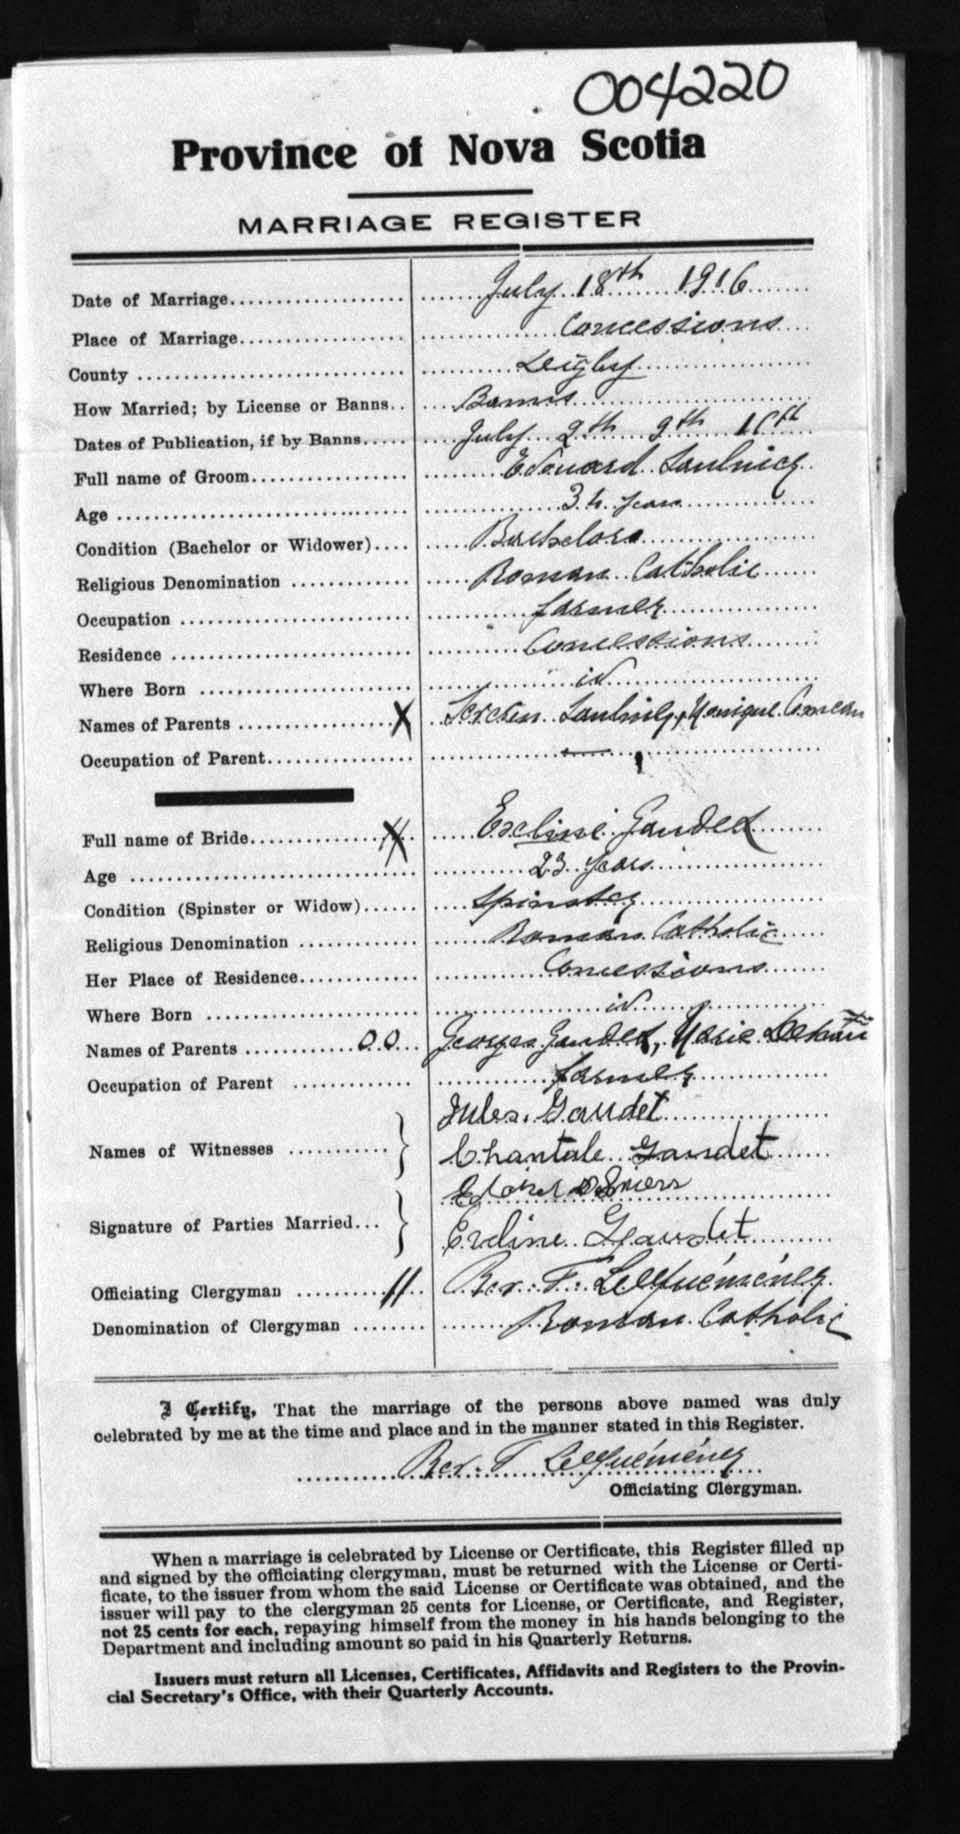 004220
Province of Nova Scotia
MARRIAGE REGISTER
Date of Marriage July 18th 1916
Place of Marriage Concessions
County Digby
How Married; by License or Banns Banns
Dates of Publication, if by Banns July 2th 9th
Full name of Groom Edouard Saulnier
Age years
Condition (Bachelor or Widower) Bachelor
Religious Denomination Roman Catholic
Occupation farmer
Residence Concessions
Where Born id
Names of Parents X Saulnier, Monique Comeau
Occupation of Parent
Full name of Bride Eveline Gaudet
Age 23 years
Condition (Spinster or Widow) Spinster
Religious Denomination Roman Catholic
Her Place of Residence Concessions
Where Born id
Names of Parents 00 Georges Gaudet, Marie
Occupation of Parent farmer
Jules Gaudet
Names of Witnesses
Chantale Gaudet
Signature of Parties Married
Eveline Gaudet
Officiating Clergyman Rev. F. LeQuéméner
Denomination of Clergyman Roman Catholic
I Certify, That the marriage of the persons above named was duly
celebrated by me at the time and place and in the manner stated in this Register.
Rev. F LeQuéméner
Officiating Clergyman.
When a marriage is celebrated by License or Certificate, this Register filled up
and signed by the officiating clergyman, must be returned with the License or Certi-
ficate, to the issuer from whom the said License or Certificate was obtained, and the
issuer will pay to the clergyman 25 cents for License, or Certificate, and Register,
not 25 cents for each, repaying himself from the money in his hands belonging to the
Department and including amount so paid in his Quarterly Returns.
Issuers must return all Licenses, Certificates, Affidavits and Registers to the Provin-
cial Secretary's Office, with their Quarterly Accounts.